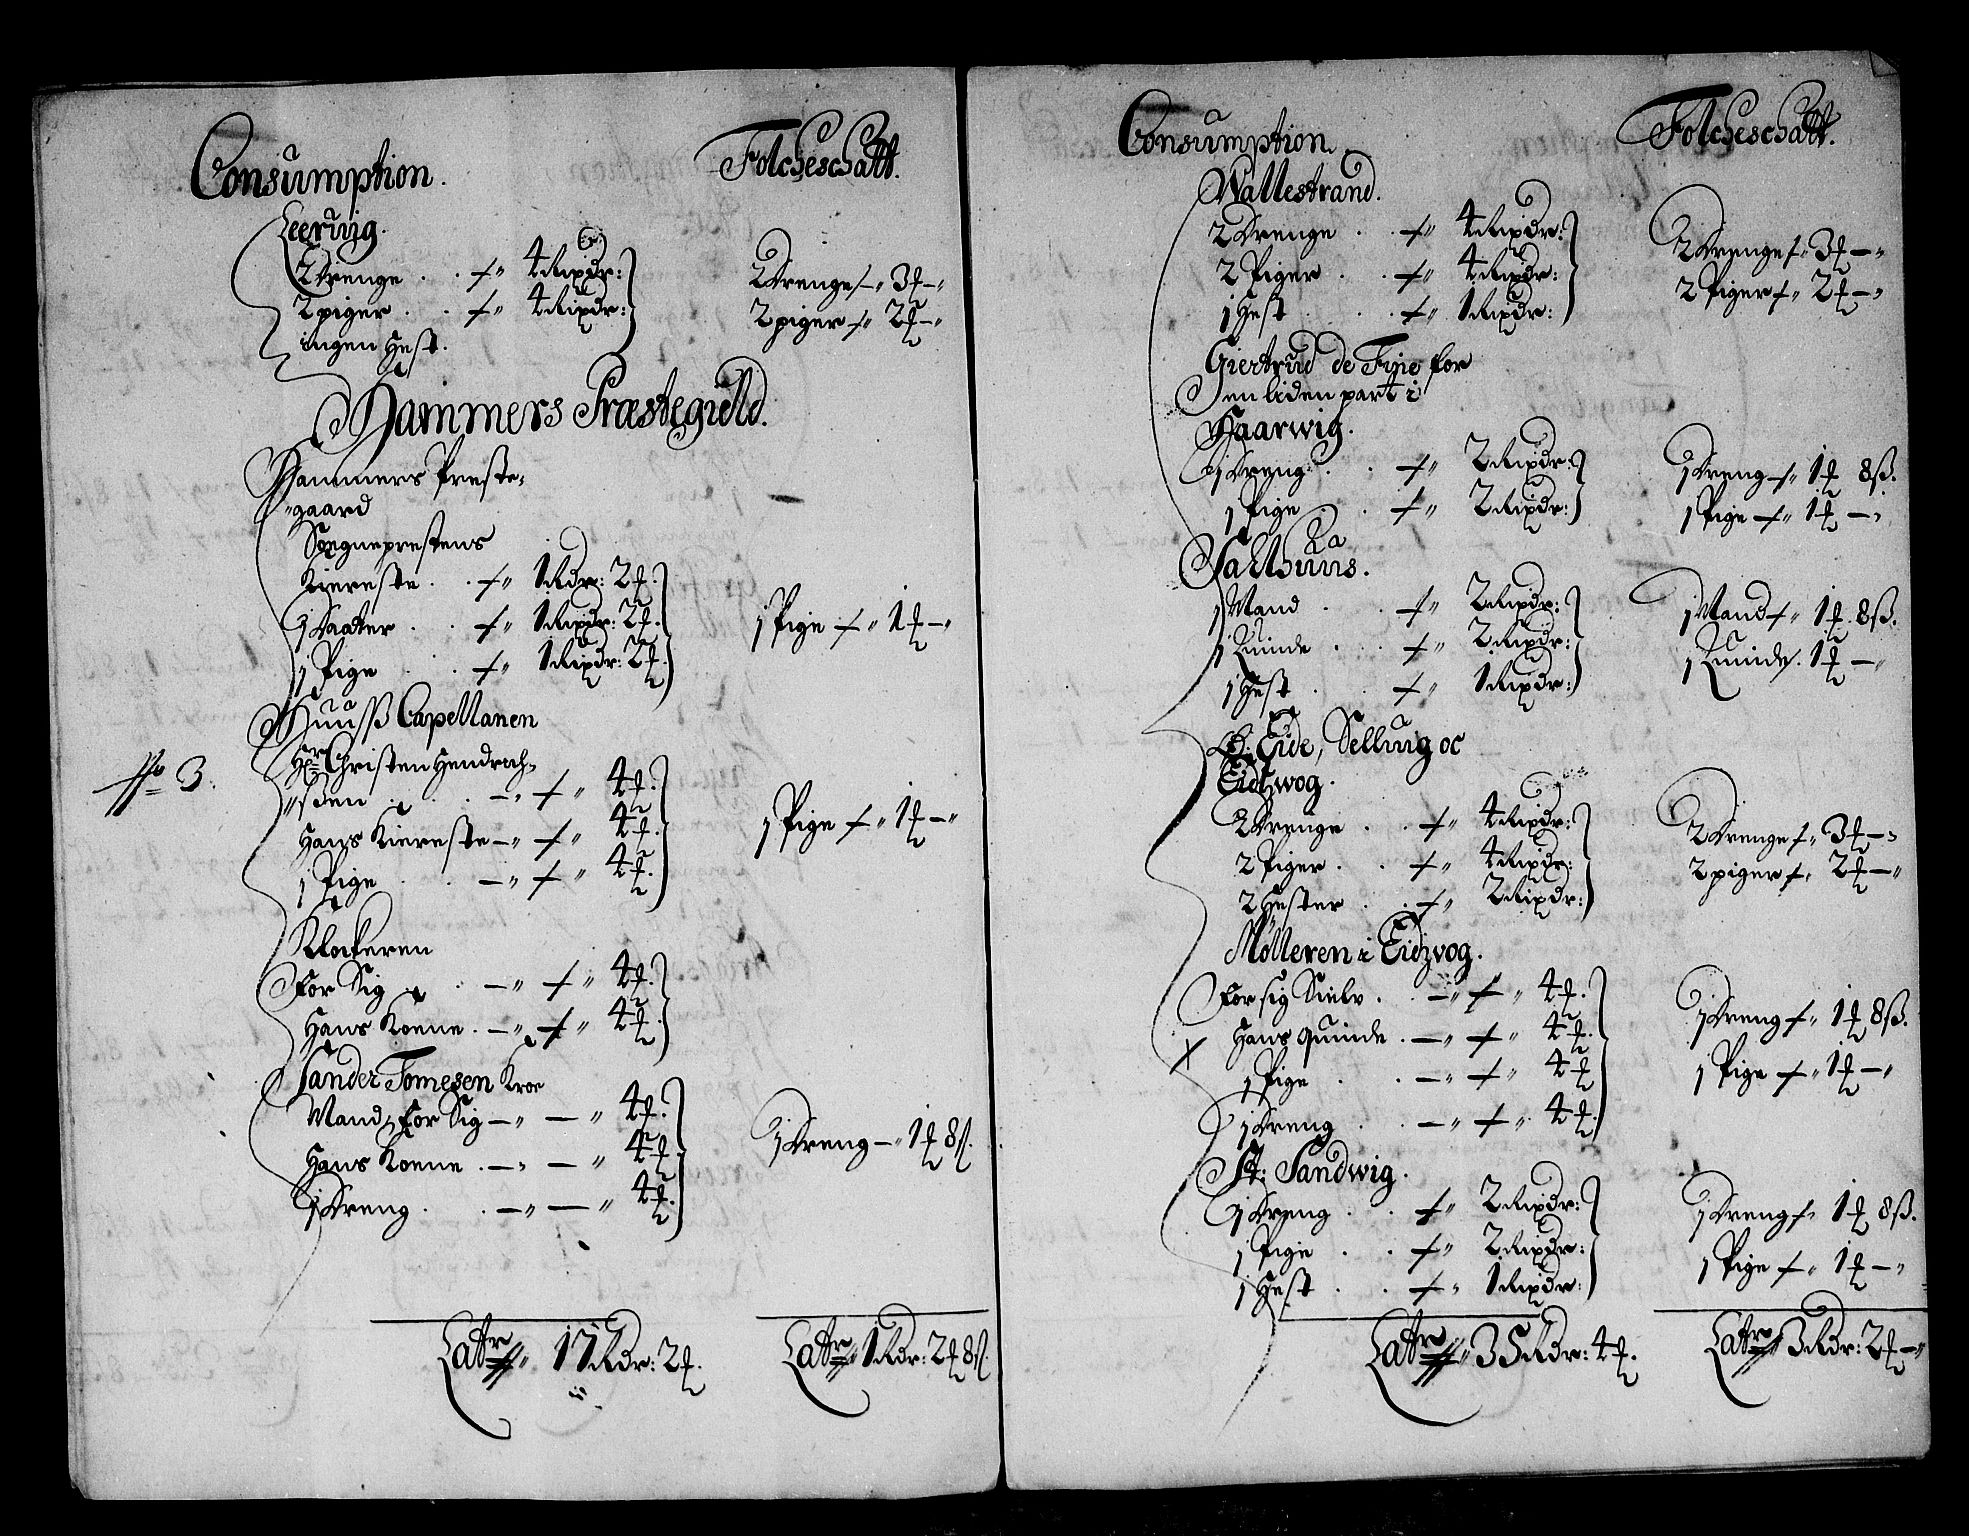 Consumption. Folcheschatt.
Leervig.
2 Drenge . . 4 Rixdr: 2 Drenge 3 ₰ —
2 piger . . 4 Rixdr: 2 piger 2 ₰ —
ingen Hest.
Hammers Præstegield.
Hammers Preste-
gaard
Sogneprestens
Kiereste . . 1 Rdr: 2 ₰.
1 Kaarer . . 1 Rixdr: 2 ₰. 1 Pige 1 ₰ —
1 Pige . . 1 Rixdr: 2 ₰.
Huuss Capellanen
Hr: Christen Hendrich-
No 3. sSen . . — 4 ₰.
Hans Kiereste — 4 ₰. 1 Pige 1 ₰ —
1 Pige . . — 4 ₰.
Klockeren
For Sig . — 4 ₰.
Hans Koene . — 4 ₰.
Sander Tomesen Kroe
Mand, For Sig — — 4 ₰.
Hans Koene . — — 4 ₰. 1 Dreng — 1 ₰ 8 ß.
1 Dreng . . — — 4 ₰.
Latr 17 Rdr: 2 ₰. Latr 1 Rdr: 2 ₰ 8 ß.
Consumption. Folcheschatt.
Wallestrand.
2 Drenge . . 4 Rixdr: 2 Drenge 3 ₰ —
2 Piger . . 4 Rixdr: 2 Piger 2 ₰ —
1 Hest . . 1 Rixdr:
Giertrud de Fine for
en liden part i
Haarwig.
1 Dreng . . 2 Rixdr: 1 Dreng 1 ₰ 8 ß.
1 Pige . . 2 Rixdr: 1 Pige 1 ₰ —
Salthuus.
1 Mand . . 2 Rixdr: 1 Mand 1 ₰ 8 ß.
1 Quinde . . 2 Rixdr: 1 Quinde. 1 ₰ —
1 Hest . . 1 Rixdr:
Eide, Selluig oc
Eidzwog.
2 Drenge . . 4 Rixdr: 2 Drenge 3 ₰ —
2 Piger . . 4 Rixdr: 2 piger 2 ₰ —
2 Hester . . 2 Rixdr:
Mølleren i Eidzvog.
For sig Sielv . . — 4 ₰. 1 Dreng 1 ₰ 8 ß.
Hans quinde . — 4 ₰.
1 Pige . . — 4 ₰. 1 Pige 1 ₰ —
1 Dreng . . — 4 ₰.
St: Sandwig.
1 Dreng . . 2 Rixdr: 1 Dreng 1 ₰ 8 ß.
1 Pige . . 2 Rixdr: 1 Pige 1 ₰ —
1 Hest . . 1 Rixdr:
Latr 35 Rdr: 4 ₰. Latr 3 Rdr: 2 ₰ —